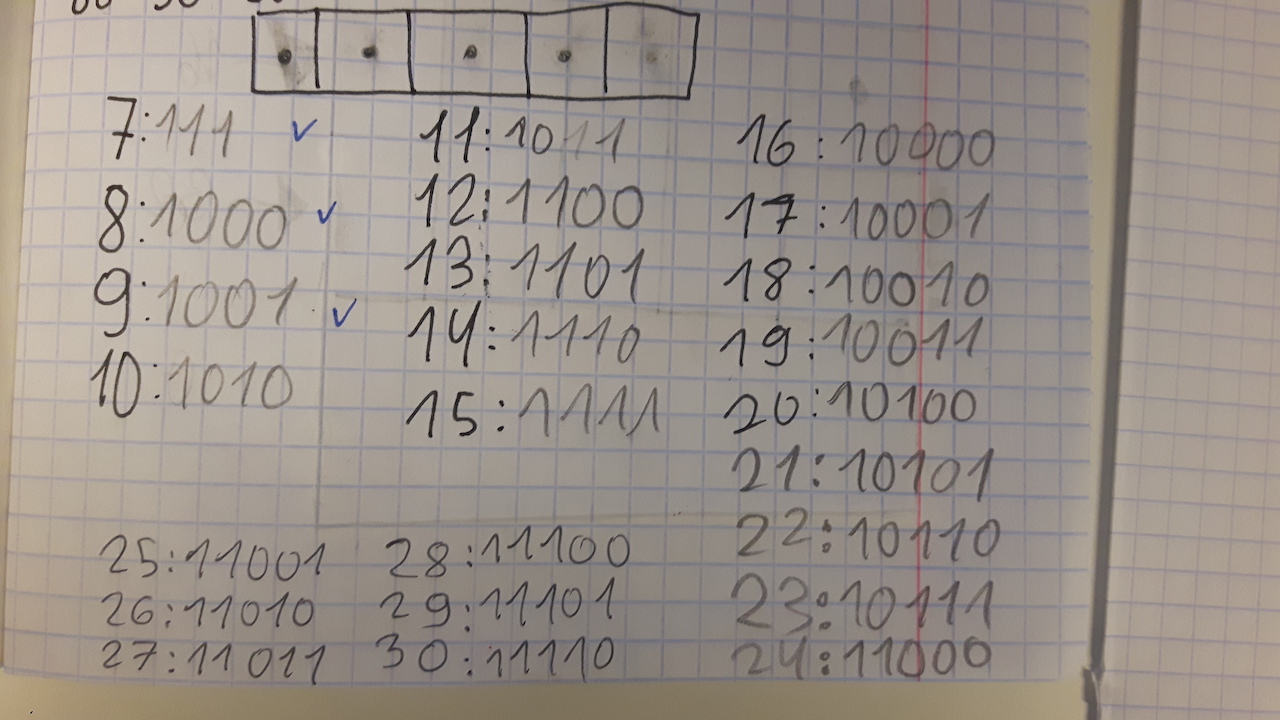 7:111
8:1000
9:1001
10:1010
11:1011
12:1100
13:1101
14:1110
15:1111
16:10000
17:10001
18:10010
19:10011
20:10100
21:10101
22:10110
23:10111
24:11000
25:11001
26:11010
27:11011
28:11100
29:11101
30:11110